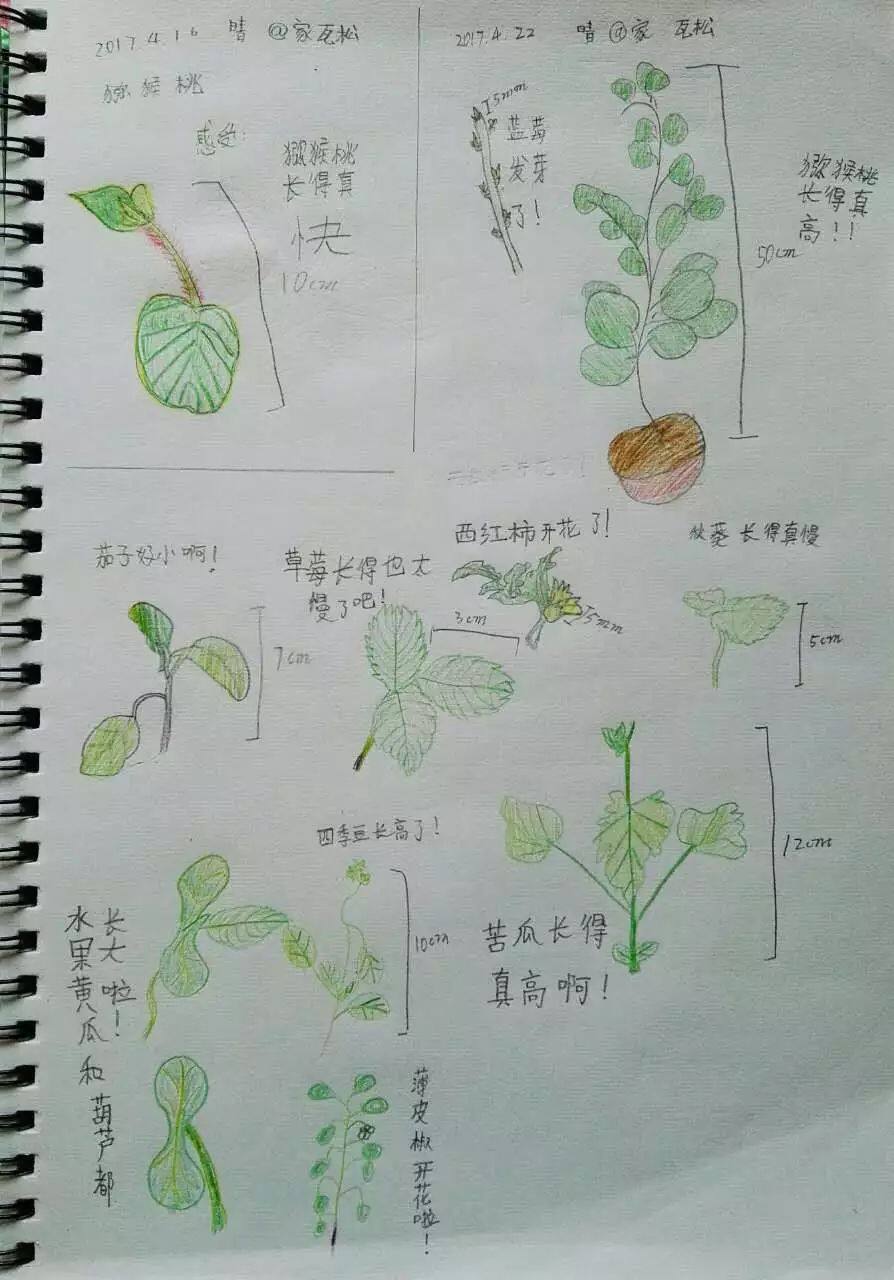 2017.4.16 晴 @家 瓦松
猕猴桃
感受:
猕猴桃
长得真
快
10cm
2017.4.22 晴 @家 瓦松
5mm
蓝莓
发芽
了!
猕猴桃
长得真
高!!
50cm
茄子好小啊!
7cm
草莓长得也太
慢了吧!
3cm
西红柿开花了!
5mm
秋葵长得真慢
5cm
四季豆长高了!
10cm
苦瓜长得
真高啊!
12cm
水果黄瓜和葫芦都
长大啦!
薄皮椒开花啦!